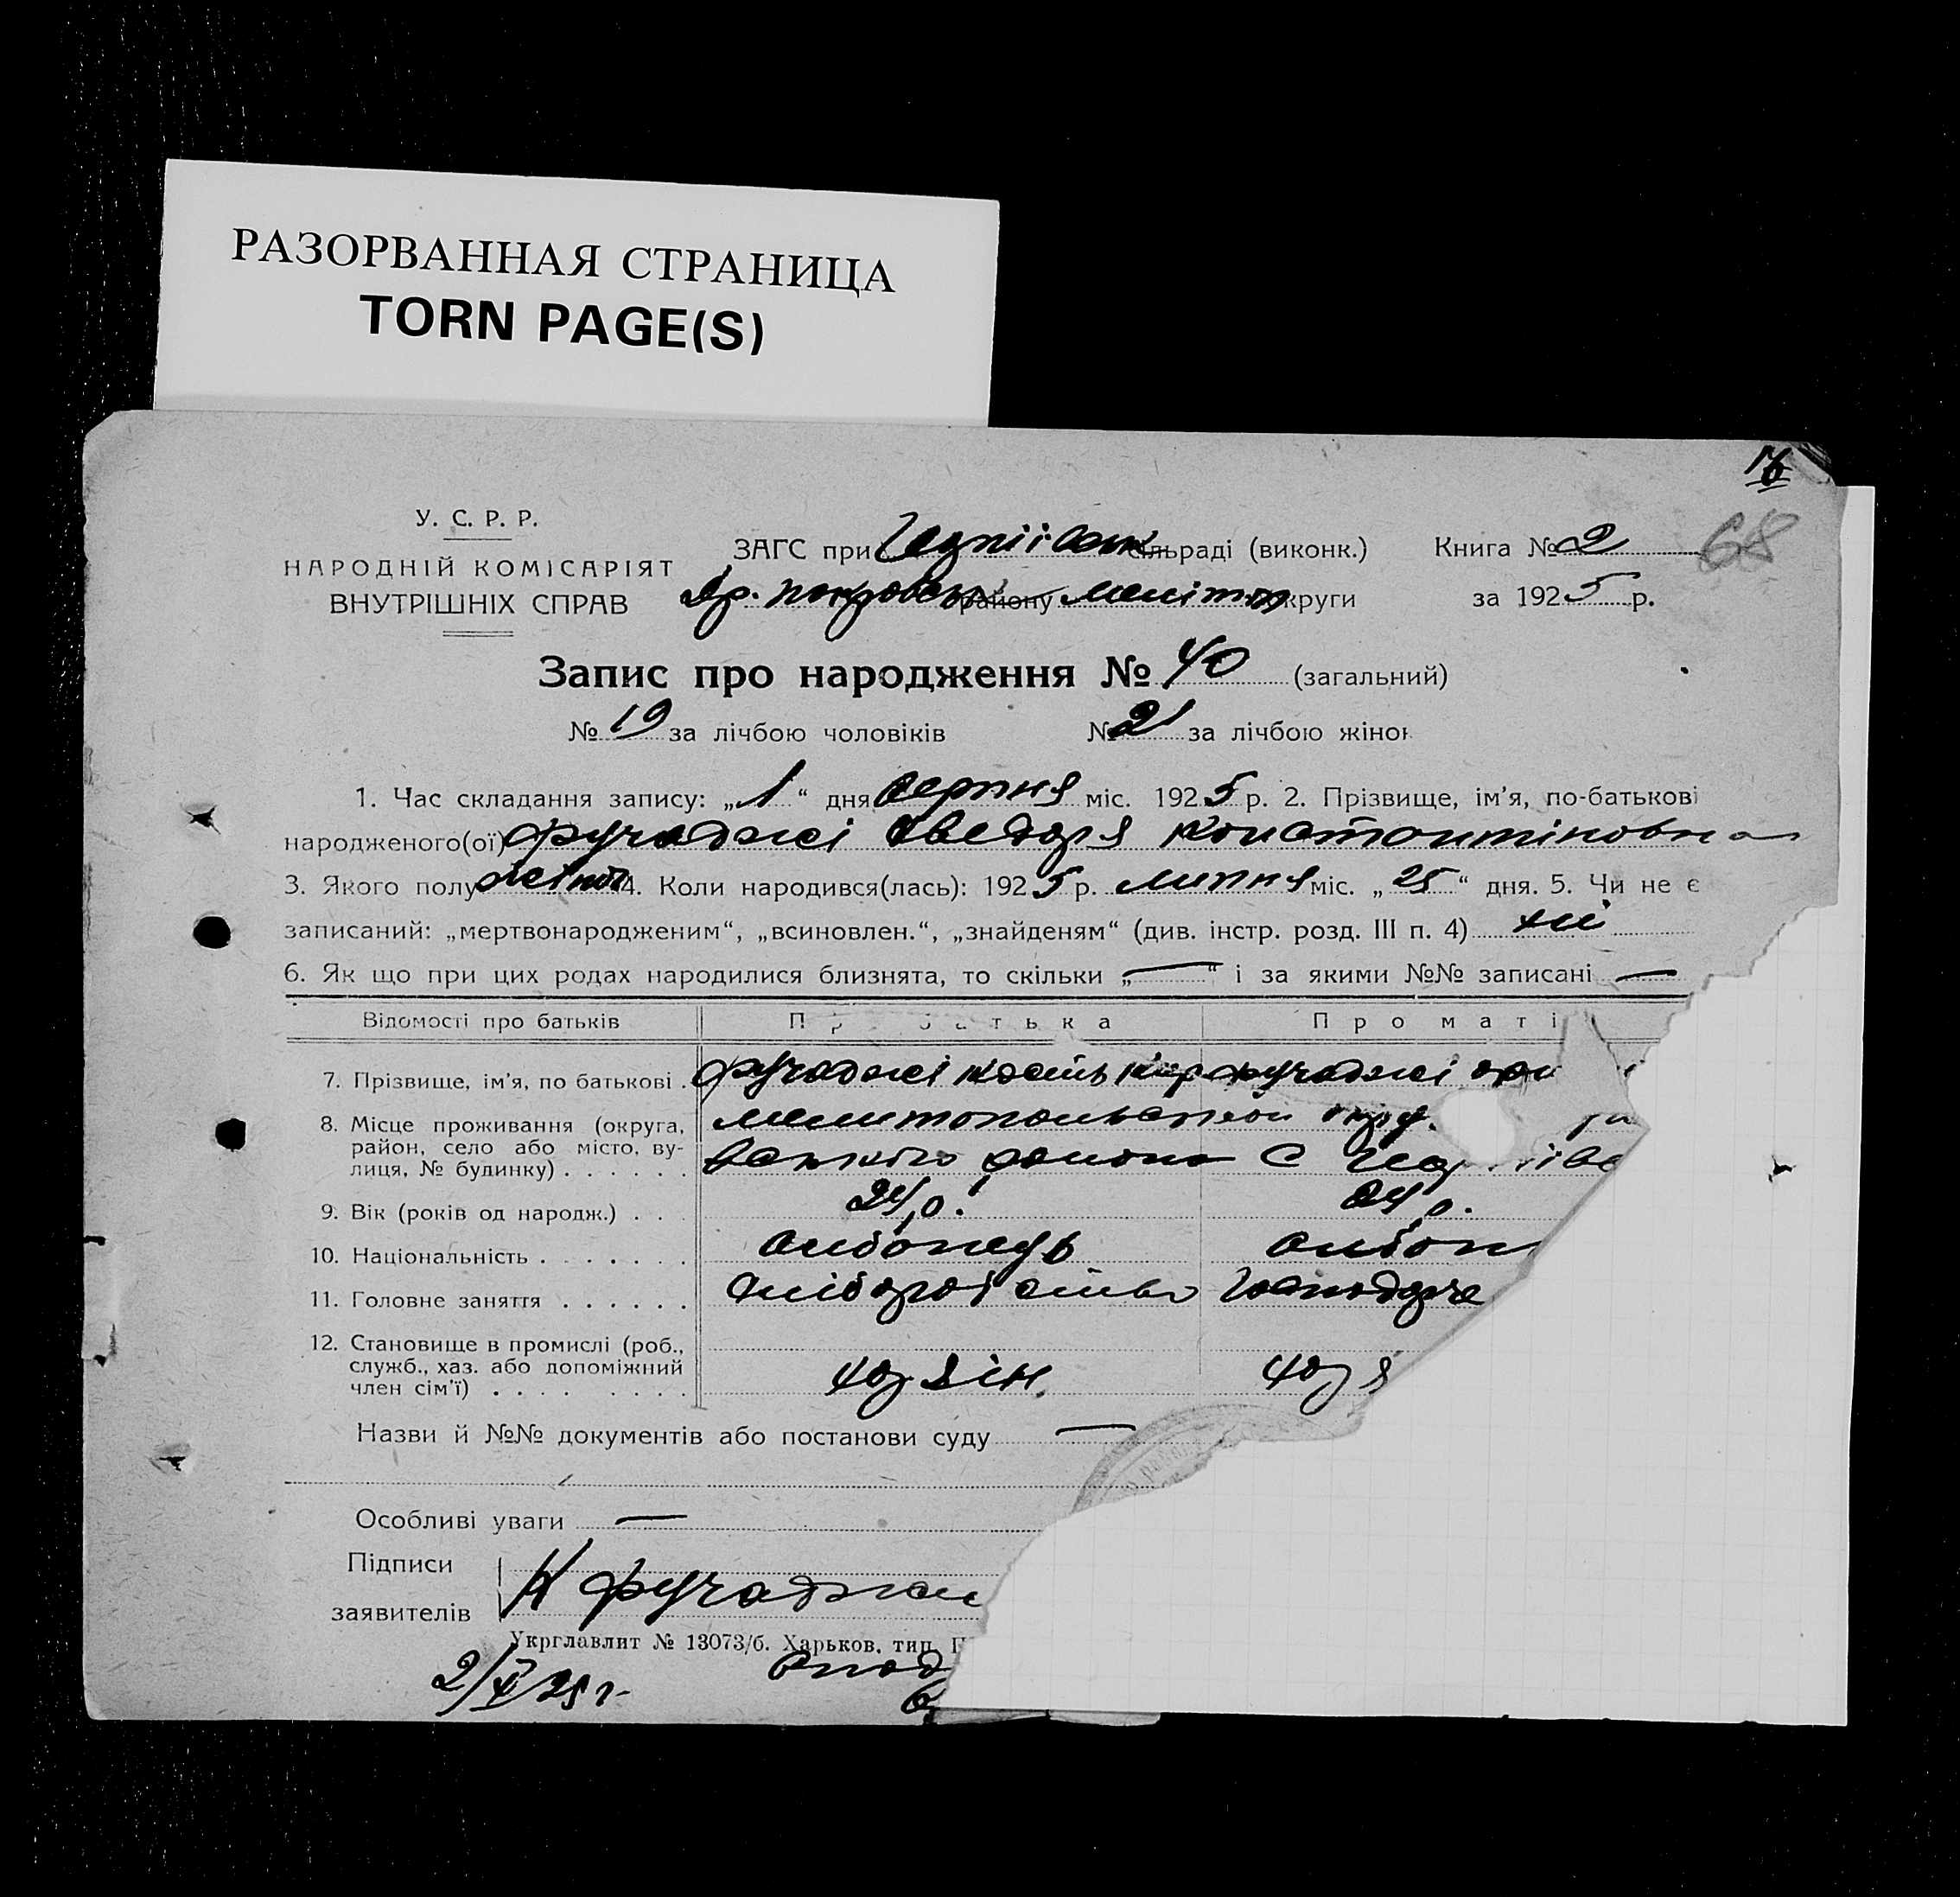 РАЗОРВАННАЯ СТРАНИЦА
TORN PAGE(S)
68
У. С. Р. Р.
НАРОДНІЙ КОМІСАРІЯТ
ВНУТРІШНІХ СПРАВ
ЗАГС при сільраді (виконк.) Книга № 2
району округи за 1925 р.
Запис про народження № 40 (загальний)
№ 19 за лічбою чоловіків № 21 за лічбою жінок
1. Час складання запису: „1“ дня серпня міс. 1925 р. 2. Прізвище, ім'я, по-батькові
народженого(ої) фучаджі Хведора Констонтіновна
3. Якого полу 4. Коли народився(лась): 1925 р. липня міс. „25“ дня. 5. Чи не є
записаний: „мертвонародженим“, „всиновлен.“, „знайденям“ (див. інстр. розд. III п. 4) ні
6. Як що при цих родах народилися близнята, то скільки „—“ і за якими №№ записані —
Відомості про батьків Про батька Про маті
7. Прізвище, ім'я, по батькові . фучаджі кость фучаджі
8. Місце проживання (округа,
район, село або місто, ву-
лиця, № будинку) . . . . . . района с
9. Вік (років од народж.) . . . 24 р. 24 р.
10. Національність . . . . . . . албонець албон
11. Головне заняття . . . . . . хліборобство господарс
12. Становище в промислі (роб.,
служб., хаз. або допоміжний
член сім'ї) . . . . . . . . хозяін. хозя
Назви й №№ документів або постанови суду —
Особливі уваги —
Підписи
заявителів К фучаджи
Укрглавлит № 13073/б. Харьков, тип.
2/X 25 г.